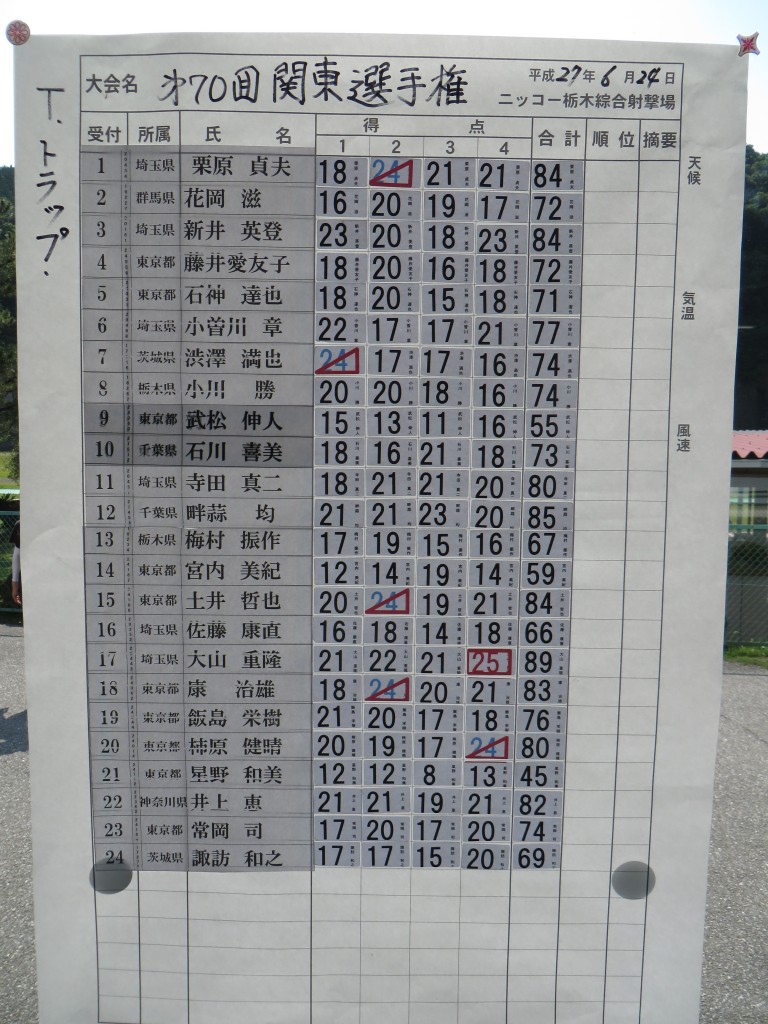 T.トラップ.
大会名 第70回関東選手権 平成27年6月24日
ニッコー栃木綜合射撃場
受付 所属 氏名 得点 合計 順位 摘要
1 2 3 4
1 埼玉県 栗原 貞夫 18 24 21 21 84
2 群馬県 花岡 滋 16 20 19 17 72
3 埼玉県 新井 英登 23 20 18 23 84
4 東京都 藤井愛友子 18 20 16 18 72
5 東京都 石神 達也 18 20 15 18 71
6 埼玉県 小曽川 章 22 17 17 21 77
7 茨城県 渋澤 満也 24 17 17 16 74
8 栃木県 小川 勝 20 20 18 16 74
9 東京都 武松 伸人 15 13 11 16 55
10 千葉県 石川 喜美 18 16 21 18 73
11 埼玉県 寺田 真二 18 21 21 20 80
12 千葉県 畔蒜 均 21 21 23 20 85
13 栃木県 梅村 振作 17 19 15 16 67
14 東京都 宮内 美紀 12 14 19 14 59
15 東京都 土井 哲也 20 24 19 21 84
16 埼玉県 佐藤 康直 16 18 14 18 66
17 埼玉県 大山 重隆 21 22 21 25 89
18 東京都 康 治雄 18 24 20 21 83
19 東京都 飯島 栄樹 21 20 17 18 76
20 東京都 柿原 健晴 20 19 17 24 80
21 東京都 星野 和美 12 12 8 13 45
22 神奈川県 井上 恵 21 21 19 21 82
23 東京都 常岡 司 17 20 17 20 74
24 茨城県 諏訪 和之 17 17 15 20 69
天候
気温
風速